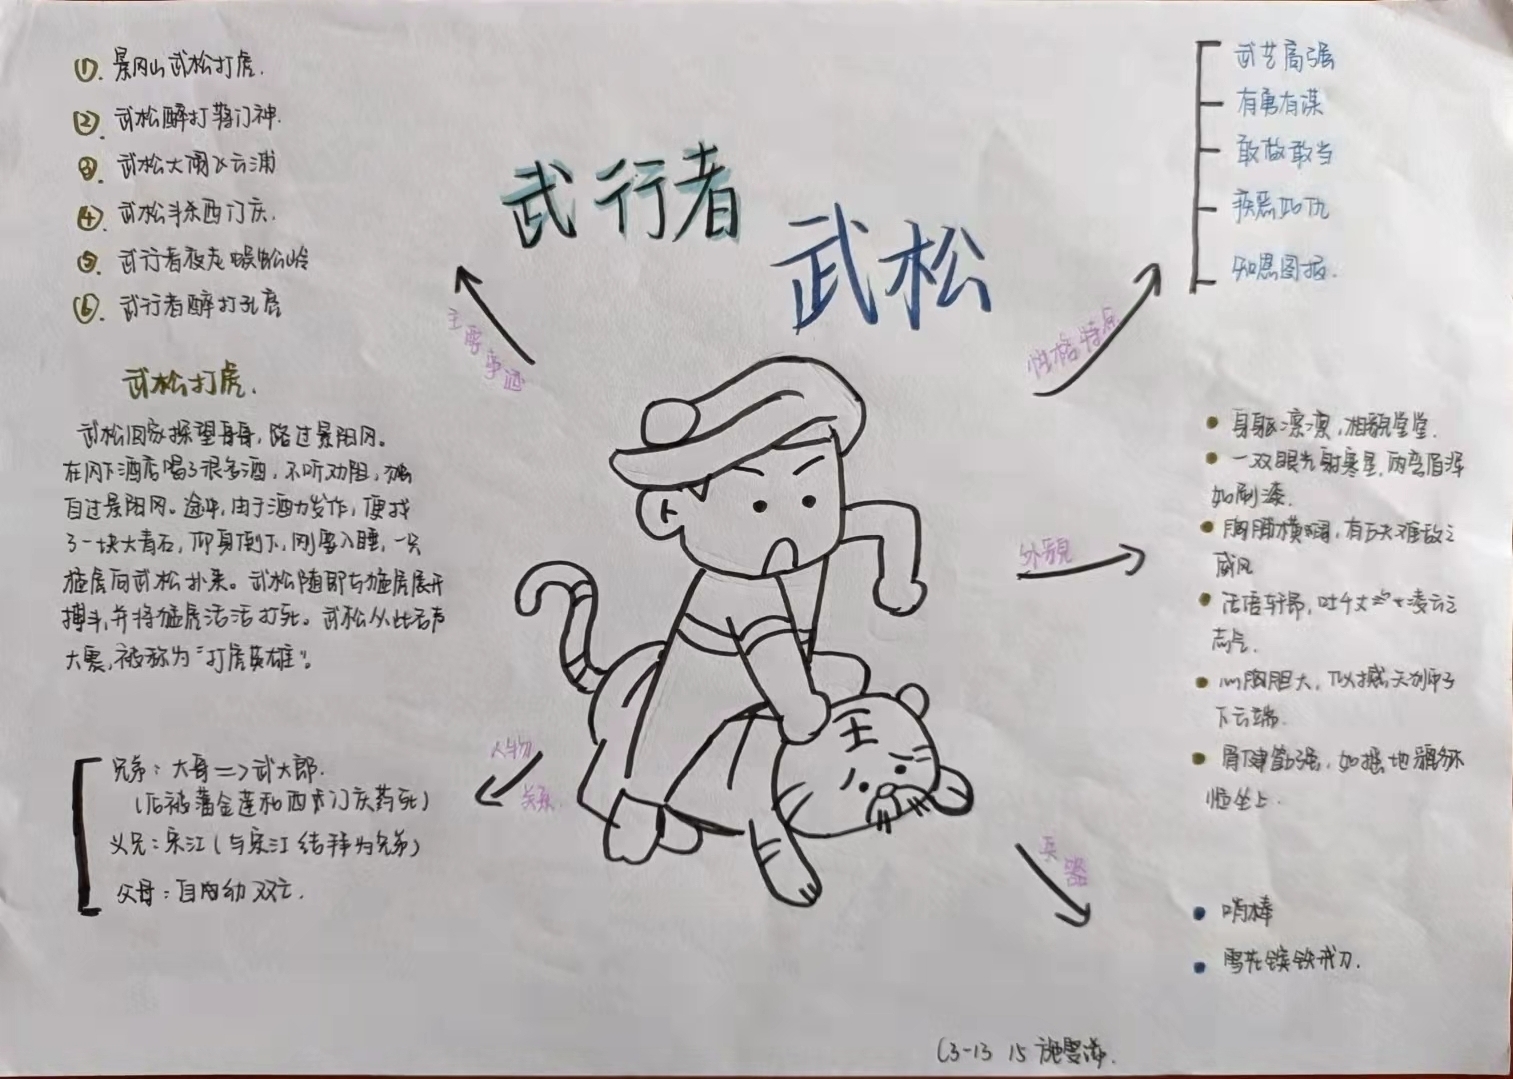 武行者
武松
主要事迹
①. 景冈山武松打虎.
②. 武松醉打蒋门神.
③. 武松大闹飞云浦
④. 武松斗杀西门庆.
⑤. 武行者夜走蜈蚣岭
⑥. 武行者醉打孔亮
武松打虎.
武松回家探望哥哥，路过景阳冈。
在冈下酒店喝了很多酒，不听劝阻，独
自过景阳冈。途中，由于酒力发作，便找
了一块大青石，仰身倒下，刚要入睡，一只
猛虎向武松扑来。武松随即与猛虎展开
搏斗，并将猛虎活活打死。武松从此名声
大震，被称为“打虎英雄”。
人物
关系.
兄弟：大哥=>武大郎.
（后被潘金莲和西门庆药死）
义兄：宋江（与宋江结拜为兄弟）
父母：自幼双亡.
性格特点
武艺高强
有勇有谋
敢做敢当
疾恶如仇
知恩图报.
外貌
身躯凛凛，相貌堂堂.
一双眼光射寒星，两弯眉浑
如刷漆.
胸脯横阔，有万夫难敌之
威风
话语轩昂，吐千丈凌云之
志气.
心雄胆大，似撼天狮子
下云端.
骨健筋强，如摇地貔貅
临坐上.
兵器
哨棒
雪花镔铁戒刀.
(3-13 15 施